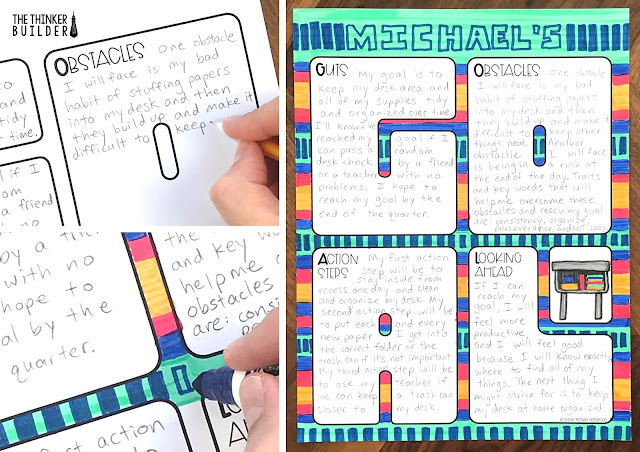 THE THINKER
BUILDER
and
tidy
time.
if I
OBSTACLES One obstacle
I will face is my bad
habit of stuffing papers
into my desk and then
they build up and make it
difficult to keep
by a the
with no
hope to
al by the
quarter.
the
and key wo
help me
obstacles
are: consi
first action
MICHAEL'S
GUTS My goal is to
keep my desk area and
all of my supplies tidy
and organized over time.
I'll know I've
reached my goal if I
can pass a random
desk check by a friend
or a teacher with no
problems. I hope to
reach my goal by the
end of the quarter.
OBSTACLES One obstacle
I will face is my bad
habit of stuffing papers
into my desk and then
they build up and make it
difficult to keep other
things neat. Another
obstacle I will face
is being in a rush at
the end of the day. Traits
and key words that will
help me overcome these
obstacles and reach my goal
are: consistency, organize,
perseverance, and
ACTION STEPS My first action
step will be to
stay inside from
recess one day and clean
and organize my desk. My
second action step will be
to put each and every
new paper I get into
the correct folder or the
trash can if it's not important.
My third action step will be
to ask my teacher if
we can keep a trash can
closer to my desk.
LOOKING AHEAD
If I can
reach my
goal, I will
feel more
productive
and I will feel good
because I will know exactly
where to find all of my
things. The next thing I
might strive for is to keep
my desk at home organized.